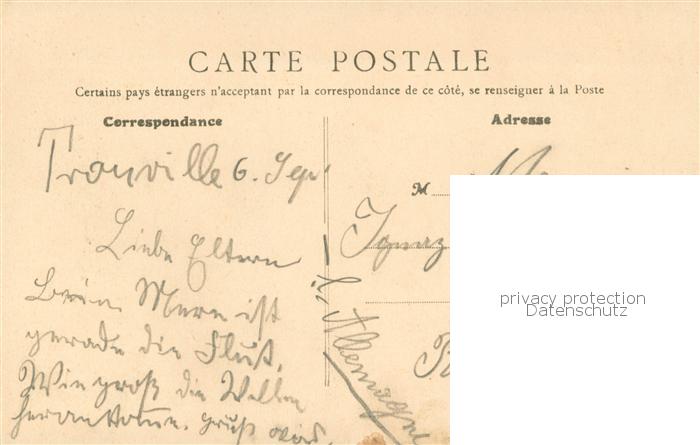 CARTE POSTALE
Certains pays étrangers n'acceptant par la correspondance de ce côté, se renseigner à la Poste
Correspondance
Adresse
Trouville 6. Sep.
M
Liebe Eltern
Ignaz
Meer ist
gerade die Flut.
Wie groß die Wellen
herankommen. Gruß
Allemagne
privacy protection
Datenschutz